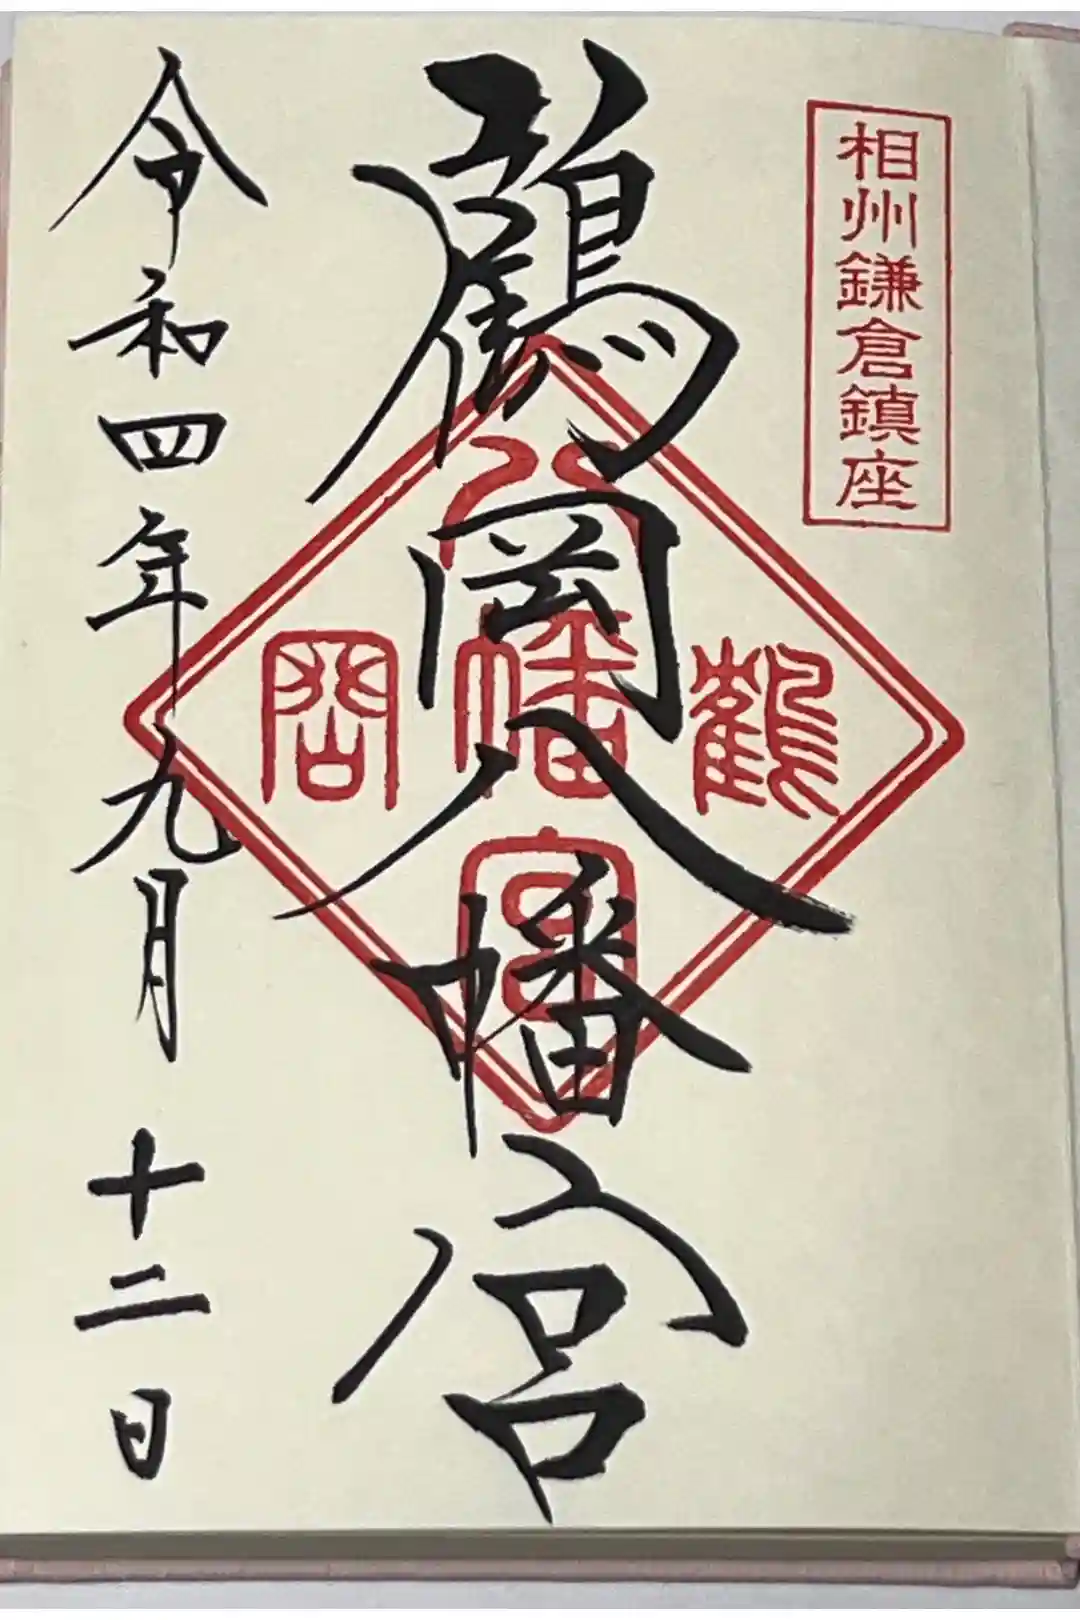 相州鎌倉鎮座
鶴岡八幡宮
八
鶴幡岡
宮
令和四年九月十二日